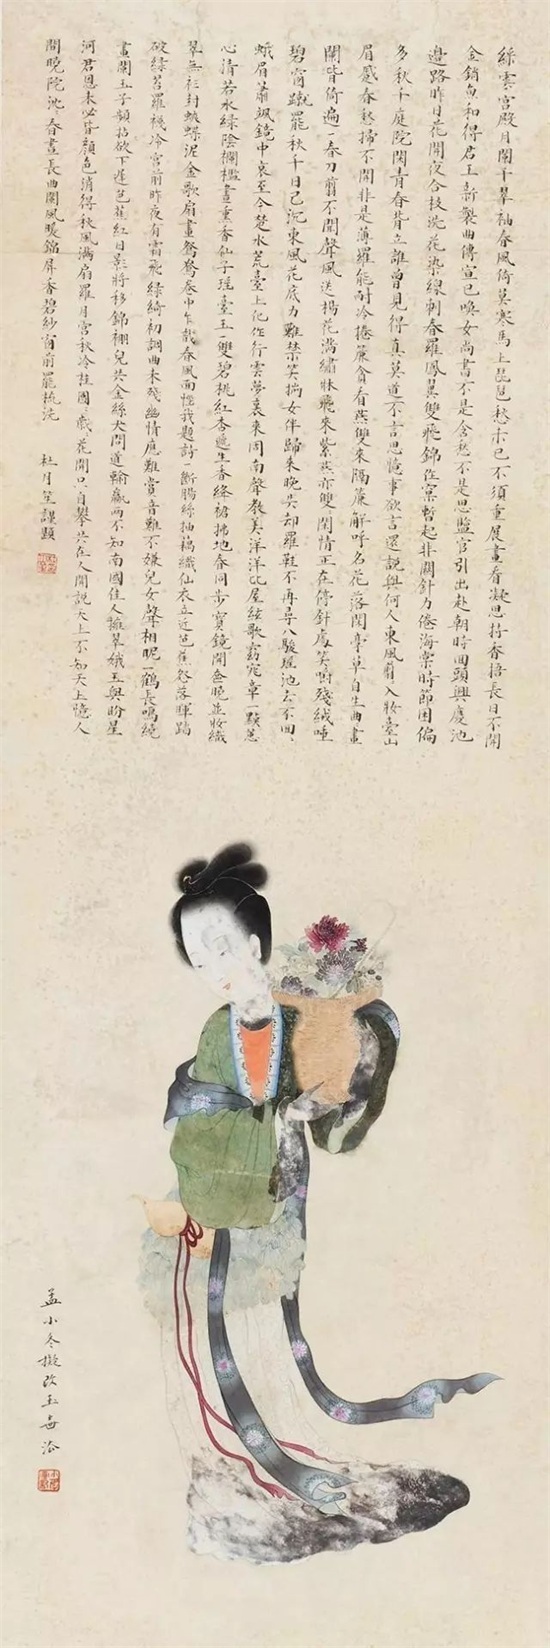 綵雲宮殿月闌干翠袖春風倚莫寒馬上琵琶愁未已不須重展畫看凝思持香捂長日不開
金銷勻和得君王新製曲傳宣已喚女尚書不是含愁不是思監官引出赴朝時回頭興慶池
邊路昨日花開夜合技浣花染線刺春羅鳳翼雙飛錦作窠暫起非關針力倦海棠時節困偏
多秋千庭院閑青春背立誰曾見得真莫道不言思憶事欲言還說與何人東風剪入妝臺山
眉蹙春愁掃不開非是薄羅能耐冷捲簾貪看燕雙來隔簾解呼名花落閑亭草自生曲畫
闌階倚遍一春刀剪不聞聲風送楊花滿繡牀飛來紫燕亦雙閑情正在停針處笑嚼殘絨唾
碧窗蹴罷秋千日已沉東風花底力難禁笑揣女伴歸來晚失却羅鞋不再尋八駿瑤池去不回
蛾眉蕭颯鏡中哀至今楚水荒臺上化作行雲夢裏來周南聲教美洋洋比屋絃歌窈窕章一顆蔥
心清若水綠陰欄檻畫重香仙子瑤臺玉一雙碧桃紅杏遞生香絳裙拂地春同步寶鏡開奩曉並妝織
翠無衫封蛺蝶泥金歌扇畫鴛鴦卷中乍哉春風面怪我題詩一斷腸絲抽藕織仙衣立近芭蕉怨落暉踏
破綠苔羅襪冷宮前昨夜有霜飛綠綺初調曲未殘幽情應難賞音難不嫌兒女聲相昵一鶴長鳴繞
畫闌玉子頻拈欲下遲芭蕉紅日影將移錦棚兒共金絲犬閒道輸贏兩不知南國佳人推翠娥玉與盼星
河君恩未必皆顏色消得秋風滿扇羅月宮秋冷桂團戲花開只自攀共在人間說天上不知天上憶人
間曉院沈春晝長曲闌風暖鎰屏香碧紗窗前罷梳洗 杜月笙謹題
孟小冬擬改玉壺法